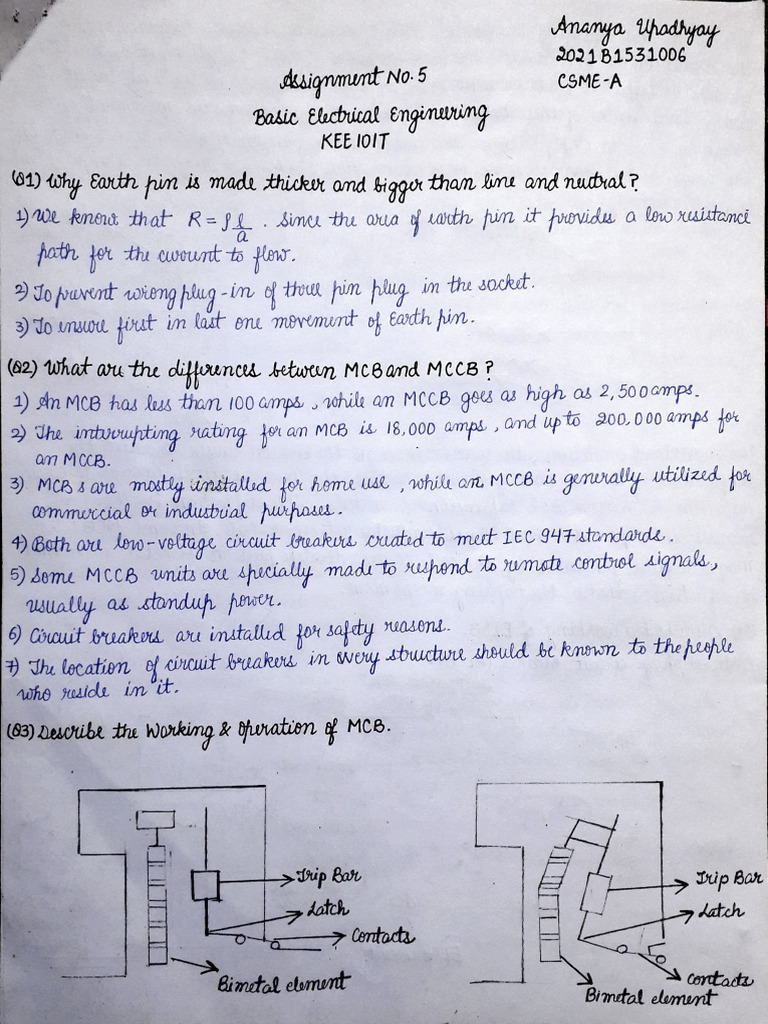 Ananya Upadhyay
2021B1531006
CSME-A
Assignment No. 5
Basic Electrical Engineering
KEE101T
(Q1) Why Earth pin is made thicker and bigger than line and neutral?
1) We know that R = ρ l/a . Since the area of earth pin it provides a low resistance
path for the current to flow.
2) To prevent wrong plug-in of three pin plug in the socket.
3) To ensure first in last one movement of Earth pin.
(Q2) What are the differences between MCB and MCCB?
1) An MCB has less than 100 amps, while an MCCB goes as high as 2,500 amps.
2) The interrupting rating for an MCB is 18,000 amps, and up to 200,000 amps for
an MCCB.
3) MCBs are mostly installed for home use, while an MCCB is generally utilized for
commercial or industrial purposes.
4) Both are low-voltage circuit breakers created to meet IEC 947 standards.
5) Some MCCB units are specially made to respond to remote control signals,
usually as standup power.
6) Circuit breakers are installed for safety reasons.
7) The location of circuit breakers in every structure should be known to the people
who reside in it.
(Q3) Describe the Working & Operation of MCB.
Trip Bar
Latch
Contacts
Bimetal element
Trip Bar
Latch
Contacts
Bimetal element